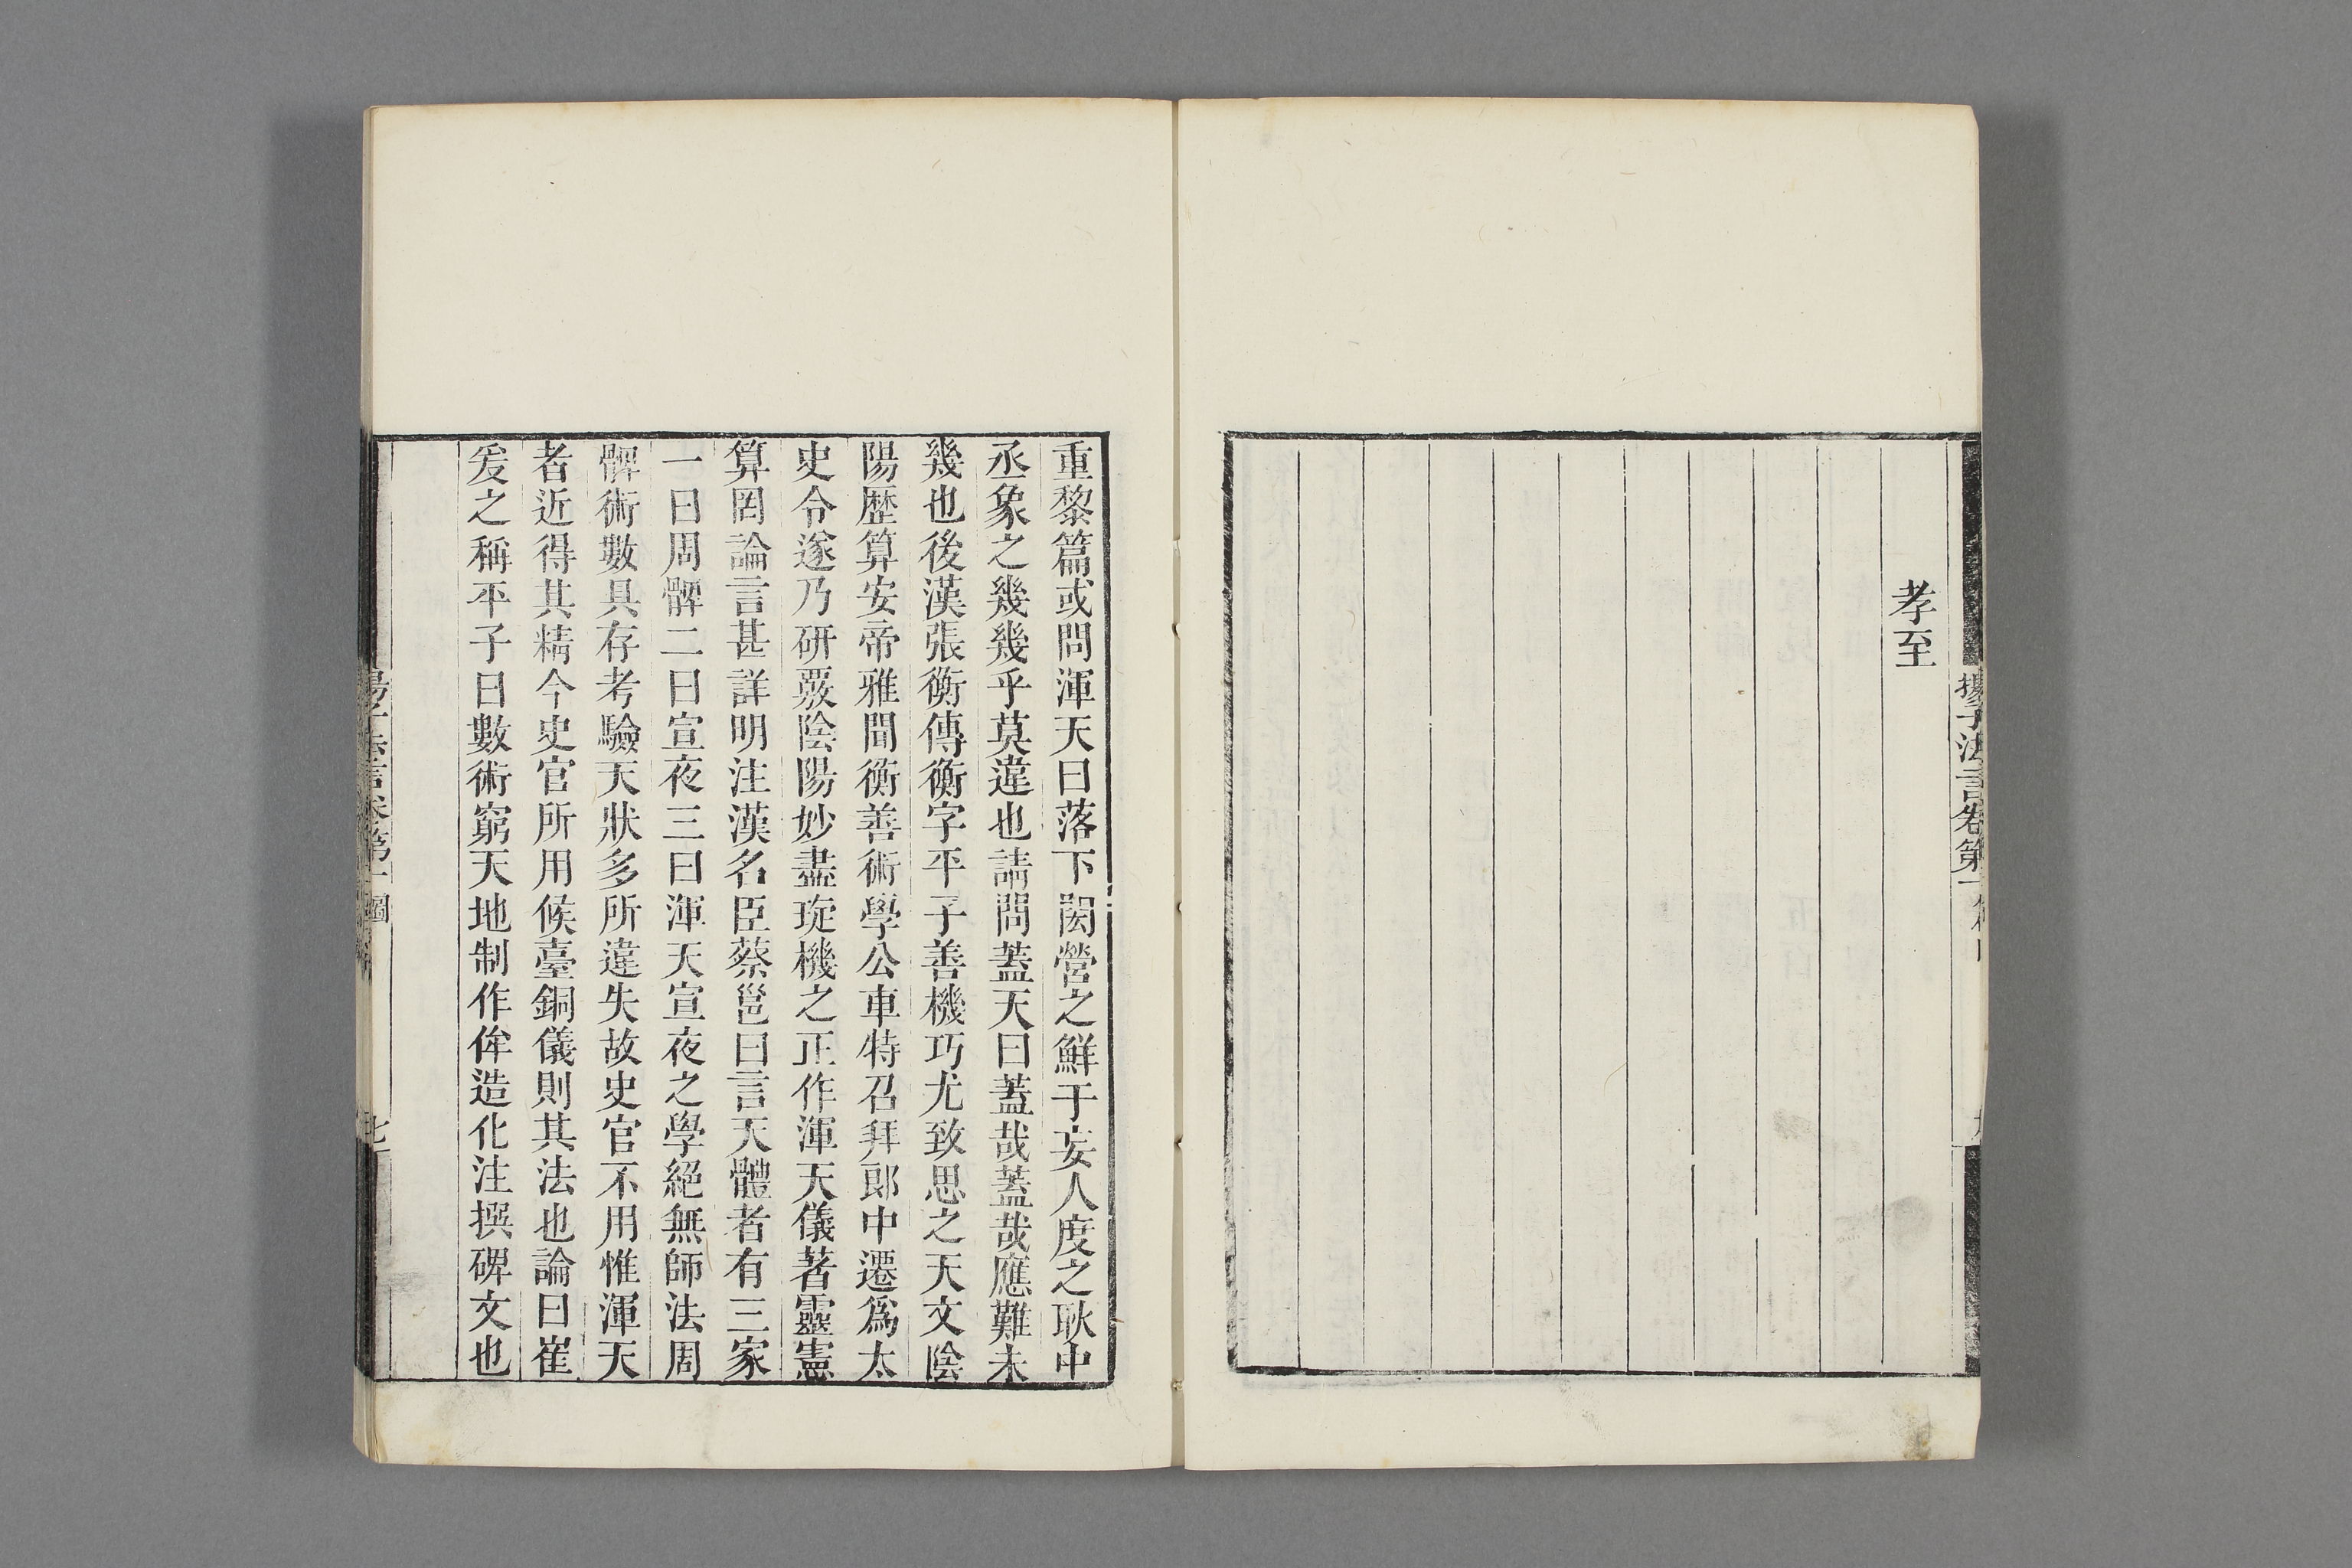 孝至
重黎篇或問渾天曰落下閎營之鮮于妄人度之耿中
丞象之幾幾乎莫違也請問蓋天曰蓋哉蓋哉應難未
幾也後漢張衡傳衡字平子善機巧尤致思之天文陰
陽歷算安帝雅聞衡善術學公車特召拜郎中遷爲太
史令遂乃研覈陰陽妙盡琁機之正作渾天儀著靈憲
算罔論言甚詳明注漢名臣蔡邕曰言天體者有三家
一曰周髀二曰宣夜三曰渾天宣夜之學絕無師法周
髀術數具存考驗天狀多所違失故史官不用惟渾天
者近得其精今史官所用候臺銅儀則其法也論曰崔
爰之稱平子曰數術窮天地制作侔造化注撰碑文也